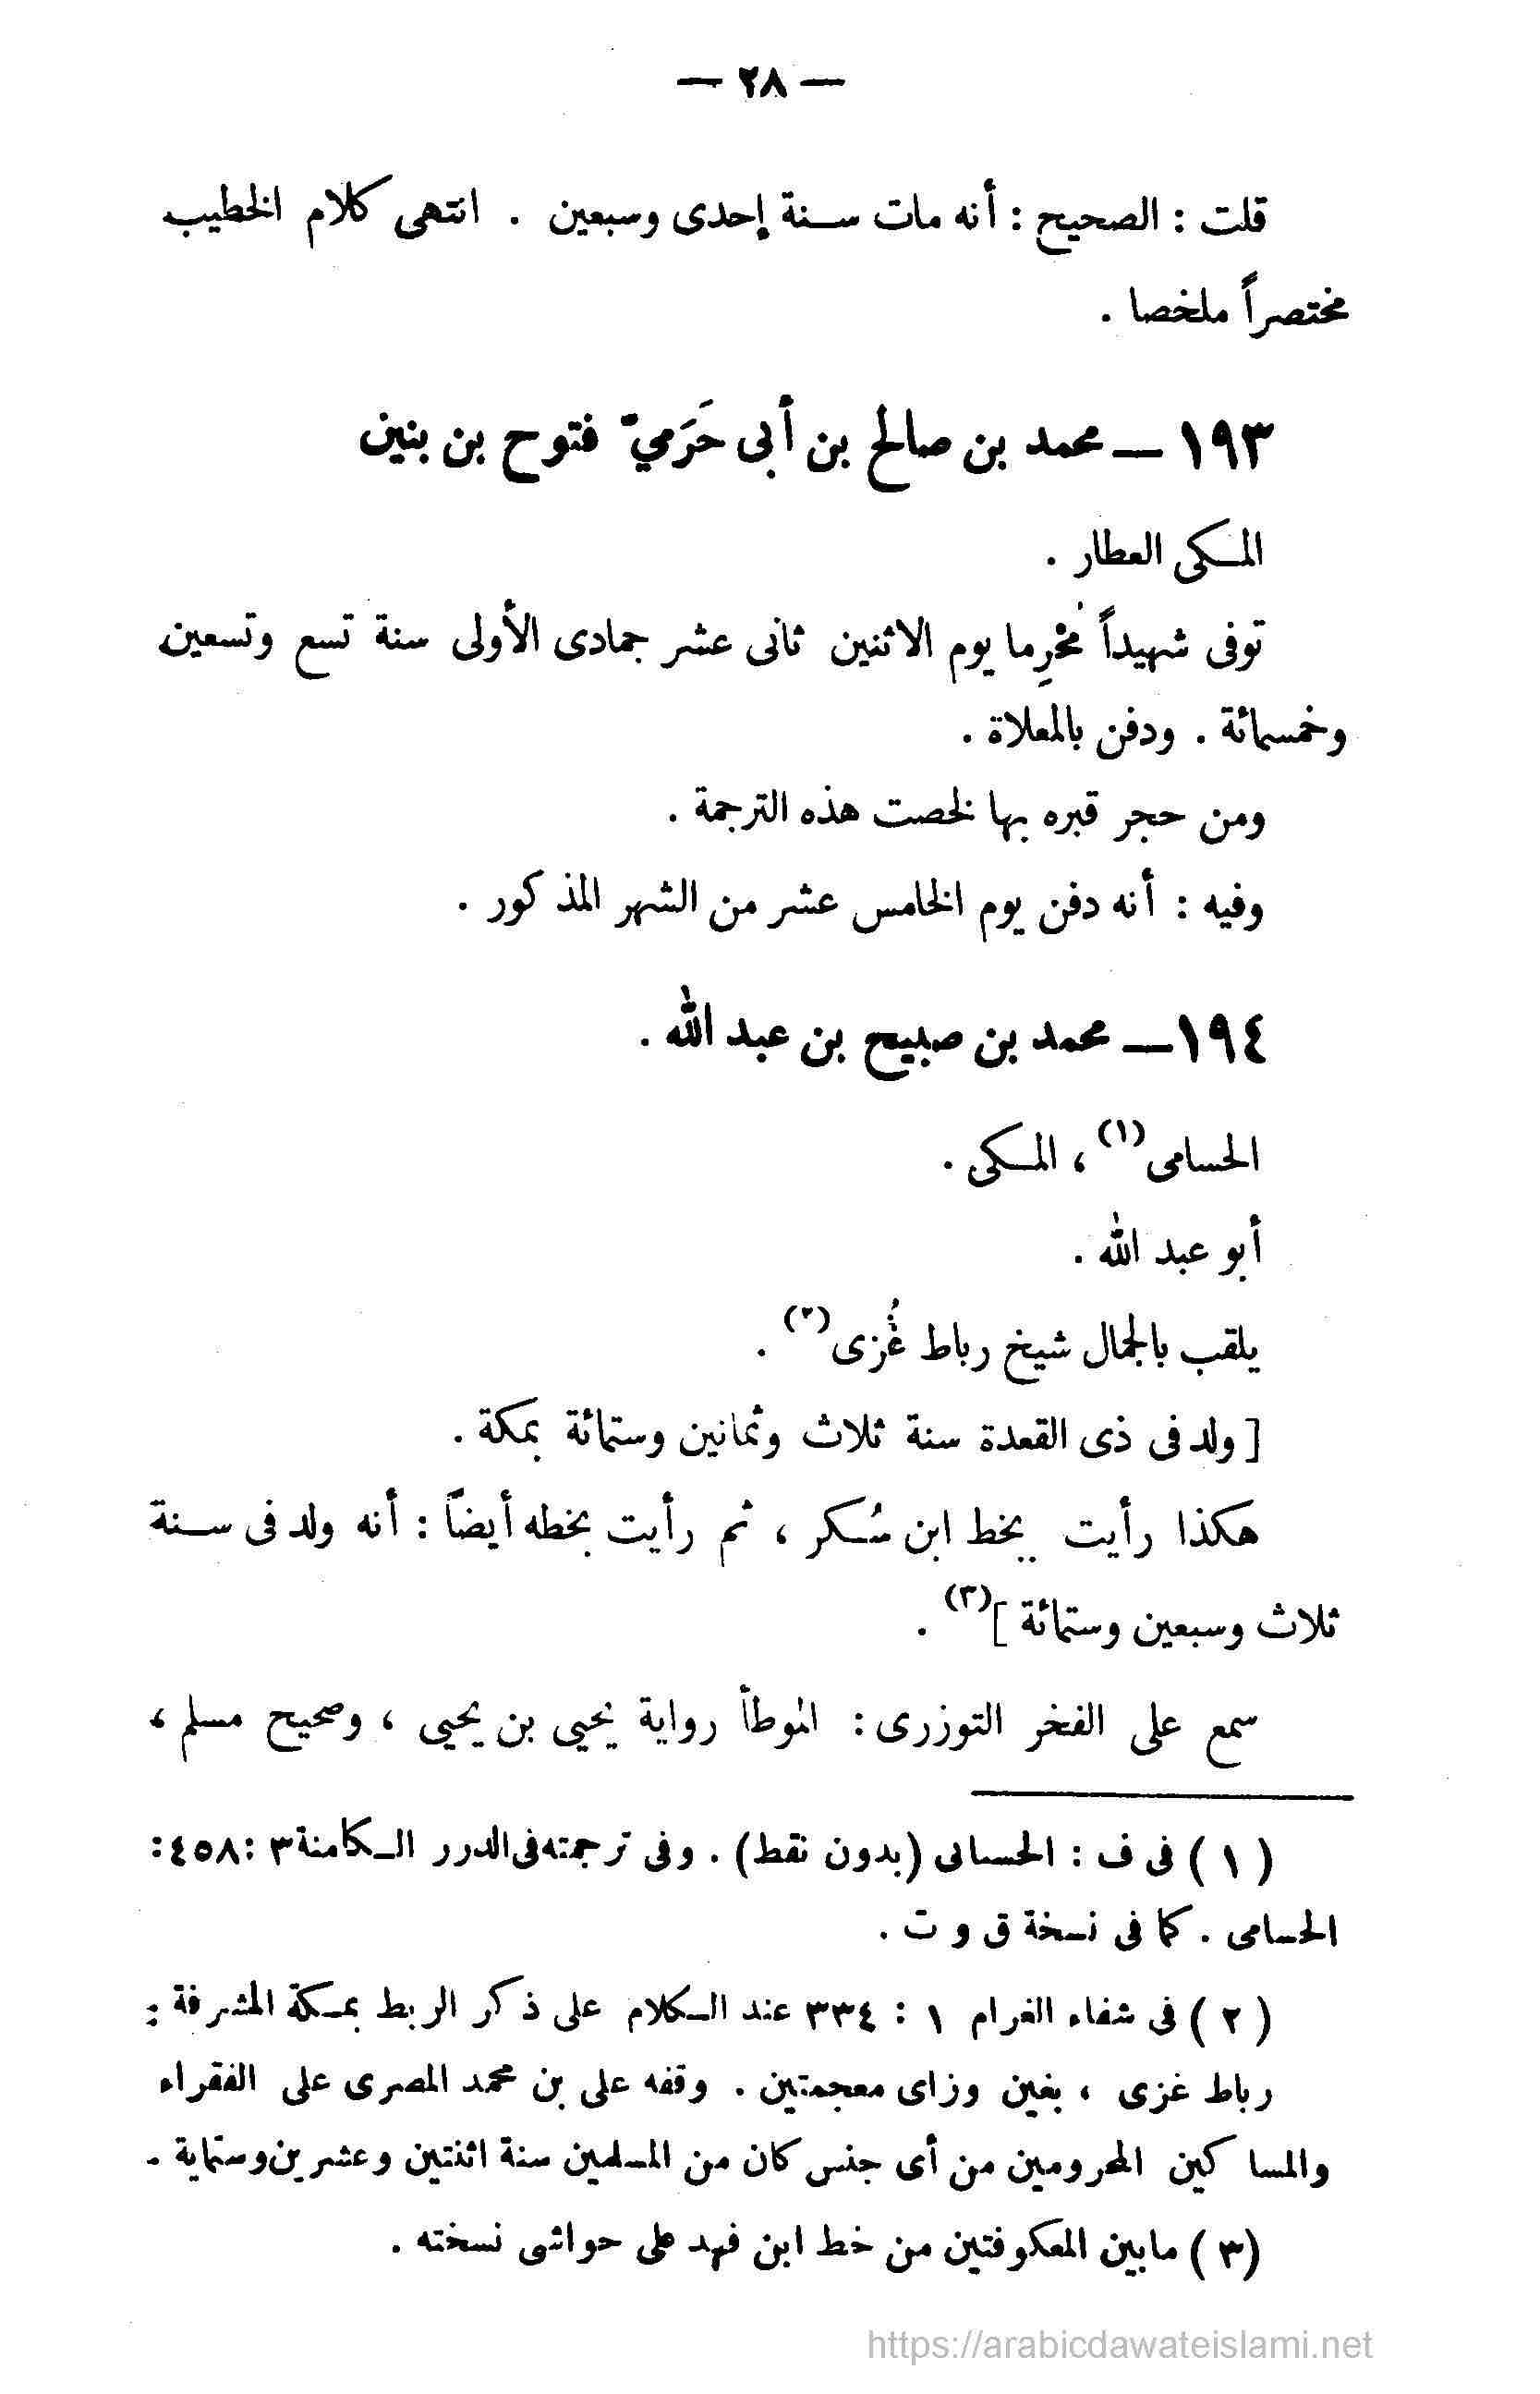 — ٢٨ —
قلت : الصحيح : أنه مات سنة إحدى وسبعين . انتهى كلام الخطيب
مختصراً ملخصا .
١٩٣ — محمد بن صالح بن أبى حَرَميّ فتوح بن بنين
المكى العطار .
توفى شهيداً مُحْرِما يوم الاثنين ثانى عشر جمادى الأولى سنة تسع وتسعين
وخمسمائة . ودفن بالمعلاة .
ومن حجر قبره بها لخصت هذه الترجمة .
وفيه : أنه دفن يوم الخامس عشر من الشهر المذكور .
١٩٤ — محمد بن صبيح بن عبد الله .
الحسامى(١) ، المكى .
أبو عبد الله .
يلقب بالجمال شيخ رباط غُزى(٢) .
[ ولد فى ذى القعدة سنة ثلاث وثمانين وستمائة بمكة .
هكذا رأيت بخط ابن سُكر ، ثم رأيت بخطه أيضاً : أنه ولد فى سنة
ثلاث وسبعين وستمائة ](٣) .
سمع على الفخر التوزرى : الموطأ رواية يحيى بن يحيى ، وصحيح مسلم ،
( ١ ) فى ف : الحسالى (بدون نقط) . وفى ترجمته فى الدرر الكامنة ٣ : ٤٥٨ :
الحسامى . كما فى نسخة ق و ت .
( ٢ ) فى شفاء الغرام ١ : ٣٣٤ عند الكلام على ذكر الربط بمكة المشرفة :
رباط غزى ، بغين وزاى معجمتين . وقفه على بن محمد المصرى على الفقراء
والمساكين المحرومين من أى جنس كان من المسلمين سنة اثنتين وعشرين وستماية .
(٣ ) مابين المعكوفتين من خط ابن فهد على حواشى نسخته .
https://arabicdawateislami.net